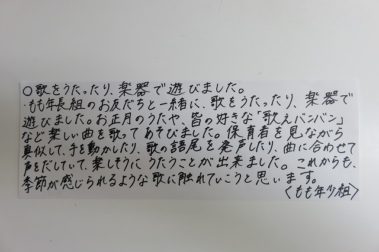 ○歌をうたったり、楽器で遊びました。
・もも年長組のお友だちと一緒に、歌をうたったり、楽器で
遊びました。お正月のうたや、皆の好きな「歌えバンバン」
など楽しい曲を歌ってあそびました。保育者を見ながら
真似して、手を動かしたり、歌の語尾を発声したり、曲に合わせて
声をだしていて、楽しそうにうたうことが出来ました。これからも、
季節が感じられるような歌に触れていこうと思います。
〈もも年少組〉